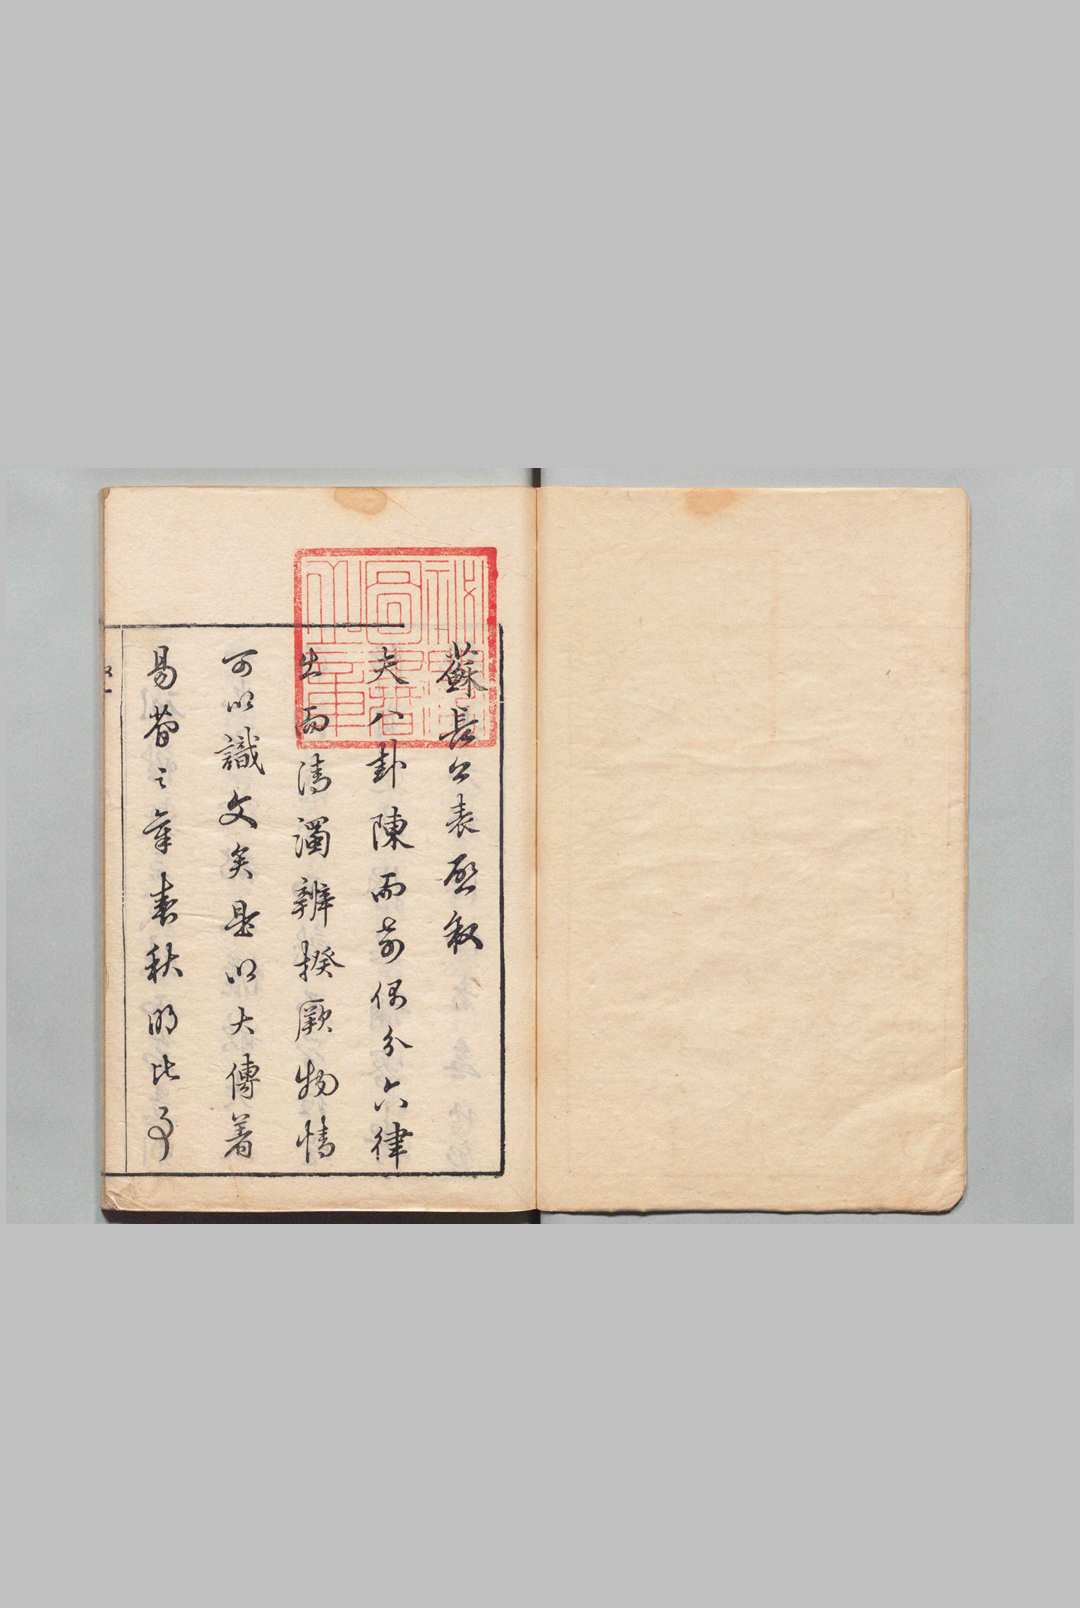 蘇長公表啓敘
夫八卦陳而奇偶分六律
出而清濁辨揆厥物情
可以識文矣是以大傳著
易簡之章春秋明比事